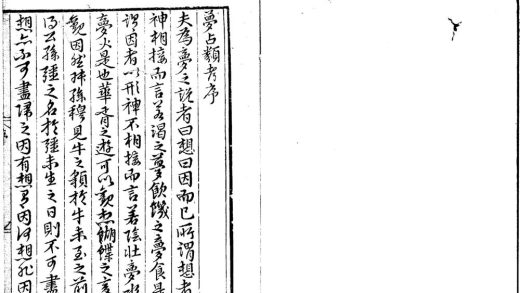 夢占類考序
夫為夢之說者曰想曰因而已所謂想者
神相接而言若渴之夢飲饑之夢食是
謂因者以形神不相接而言若陰壯夢水
夢火是也華胥之遊可以觀想蝴蝶之
觀因然叔孫穆見牛之於牛未至之前
公孫彊之名於彊未生之日則不可盡
想亦不可盡歸之因有想因何想非因